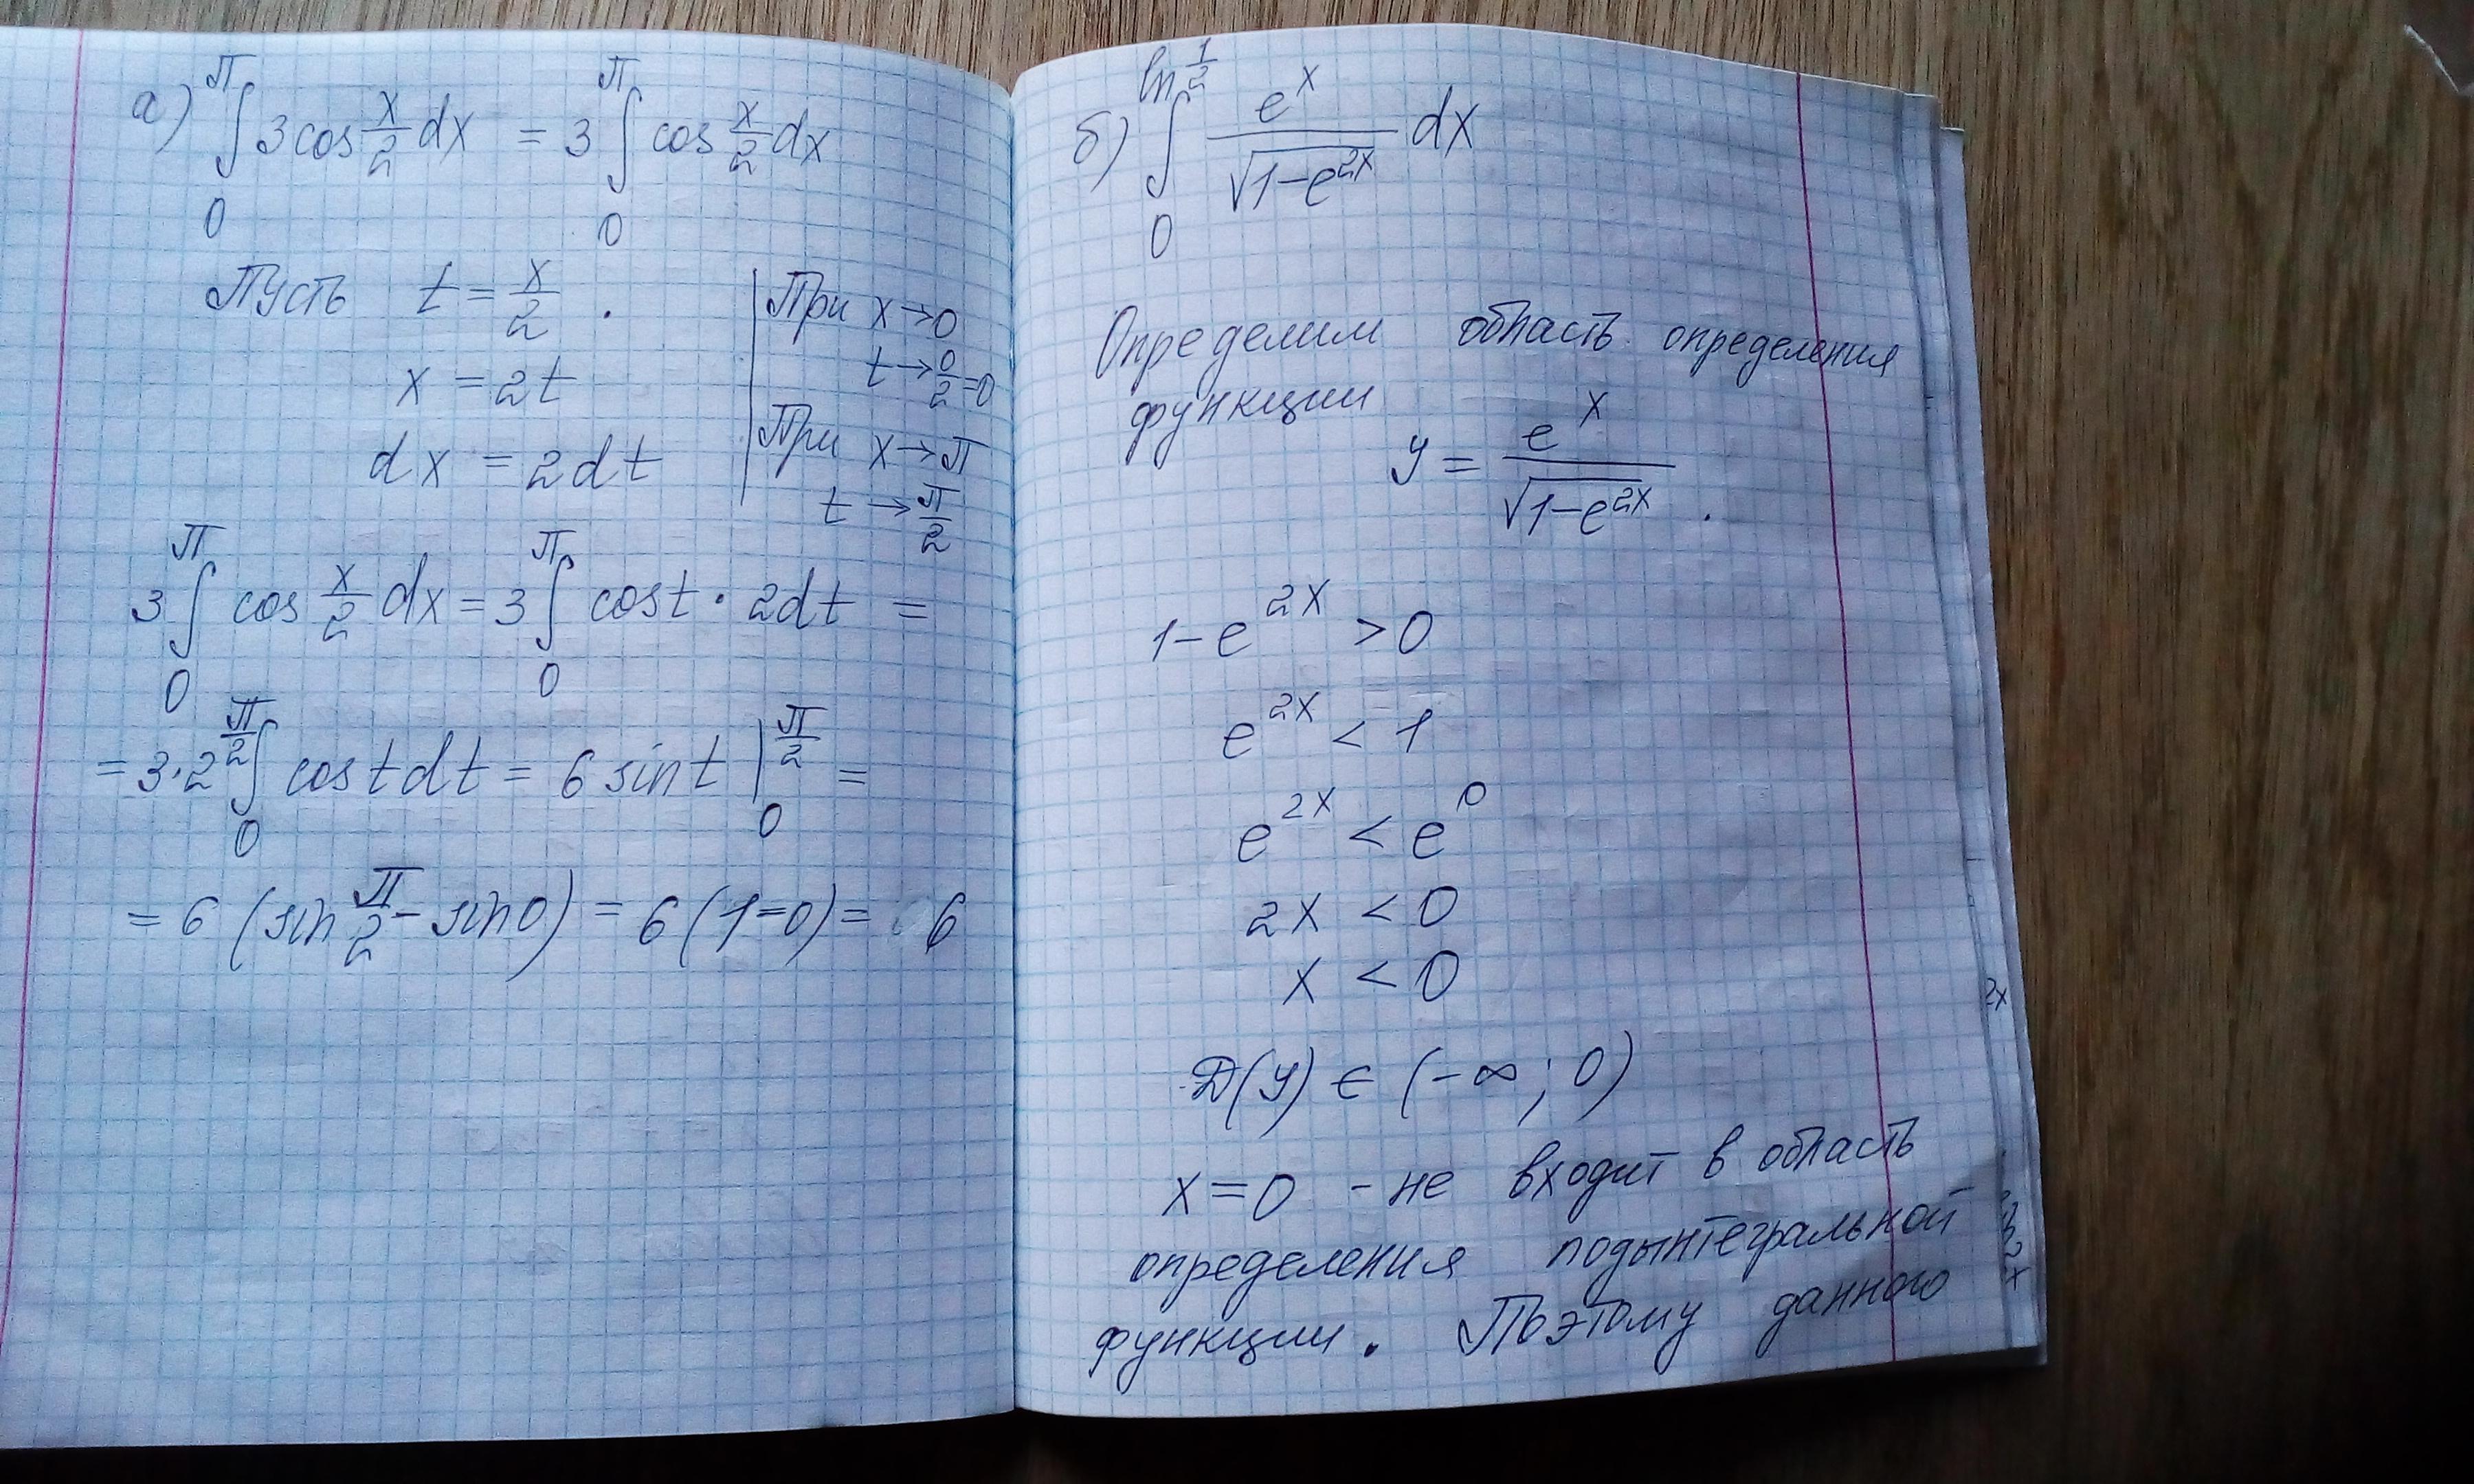 а) ∫₀^π 3cos x/2 dx = 3 ∫₀^π cos x/2 dx
Пусть t = x/2 .
x = 2t
dx = 2dt
При x→0
t→0/2=0
При x→π
t→π/2
3 ∫₀^π cos x/2 dx = 3 ∫₀^π cos t · 2dt =
= 3·2 ∫₀^(π/2) cos t dt = 6 sin t |₀^(π/2) =
= 6 (sin π/2 - sin 0) = 6 (1-0) = 6
б) ∫₀^(ln 1/2) e^x/√(1-e^(2x)) dx
Определим область определения
функции
y = e^x/√(1-e^(2x)) .
1-e^(2x) > 0
e^(2x) < 1
e^(2x) < e^0
2x < 0
x < 0
D(y) ∈ (-∞; 0)
x=0 - не входит в область
определения подынтегральной
функции. Поэтому данного
2x